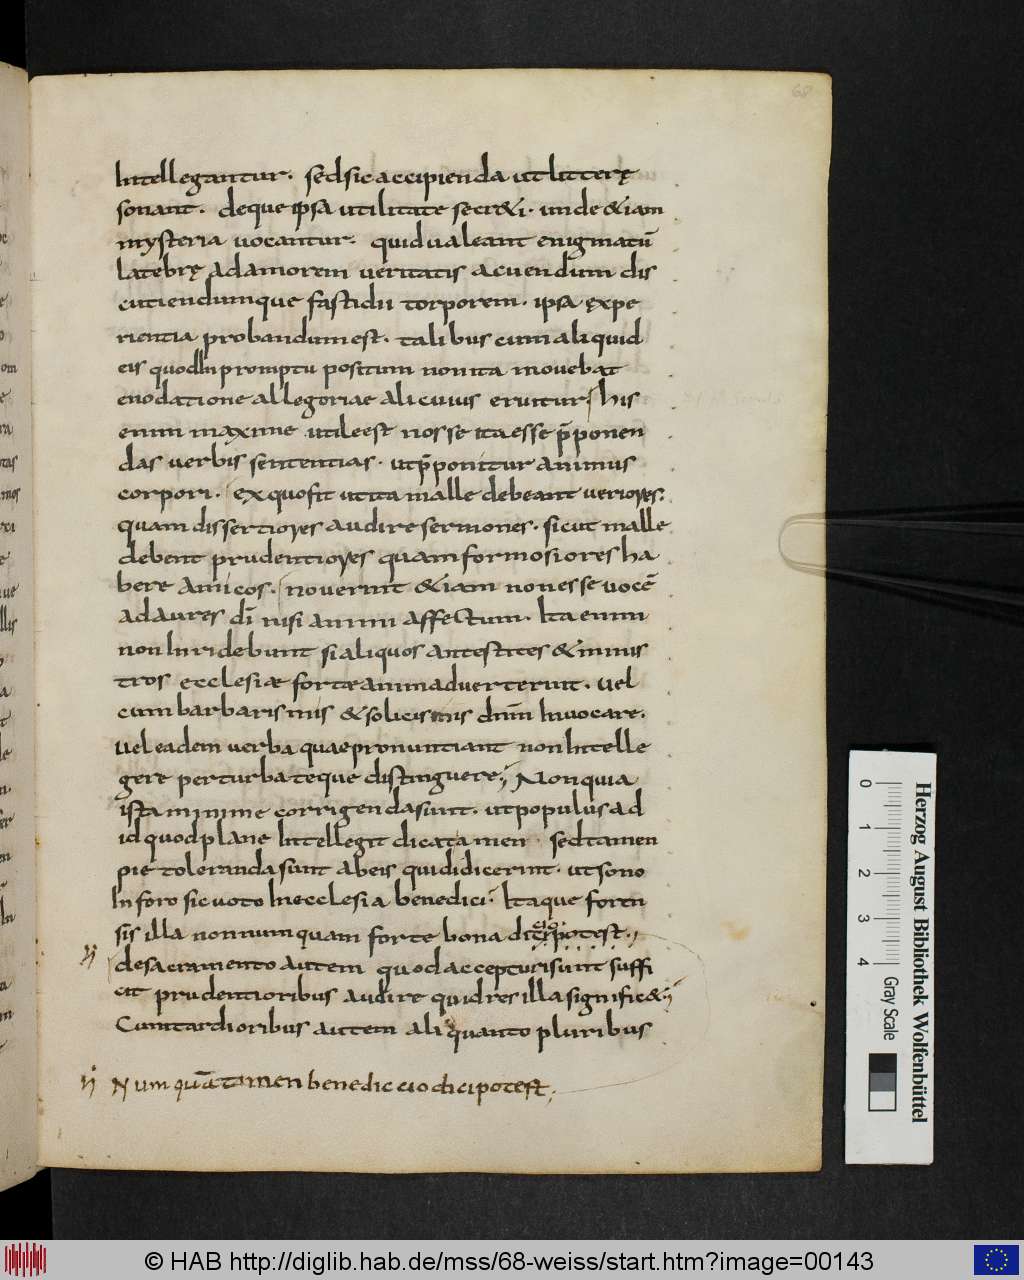 68
Intellegantur. sedsic accipienda utlitterę
sonant. deque ipsa utilitate secr&i. unde &iam
mysteria uocantur. quid ualeant enigmatū
latebrę adamorem ueritatis acuendum dis
cutiendumque fastidii torporem. ipsa ęxpe
rientia probandum est. talibus cum aliquid
eis quod Inpromptu positum non ita mouebat
enodatione allegoriae alicuius eruitur. his
enim maxime utile est nosse ita esse p̄ponen
das uerbis sententias. ut p̄ponitur animus
corpori. ex quo fit ut ita malle debeant ueriores.
quam dissertiores audire sermones. sicut malle
debent prudentiores quam formosiores ha
bere amicos. nouerint &iam non esse uocē
ad aures dī nisi animi affectum. Ita enim
non Inridebunt si aliquos antestites & minis
tros ecclesiæ forte animaduerterint. uel
cum barbarismis & solicismis dnm̄ Inuocare.
uel eadem uerba quae pronuntiant non Intelle
gere perturbateque distinguere; Non quia
ista minime corrigenda sunt. ut populus ad
id quod plane Intellegit dicat amen. sed tamen
pie toleranda sunt ab eis qui didicerint. ut sono
In foro sic uoto In ecclesia benedici. Itaque foren
sis illa nonnumquam forte bona dictio dici potest.
de sacramento autem quod accepturi sunt suffi
cit prudentioribus audire quid res illa signific&;
Cum tardioribus autem aliquanto pluribus
Numquā tamen benedictio dici potest;
Herzog August Bibliothek Wolfenbüttel
0 1 2 3 4 Gray Scale
© HAB http://diglib.hab.de/mss/68-weiss/start.htm?image=00143